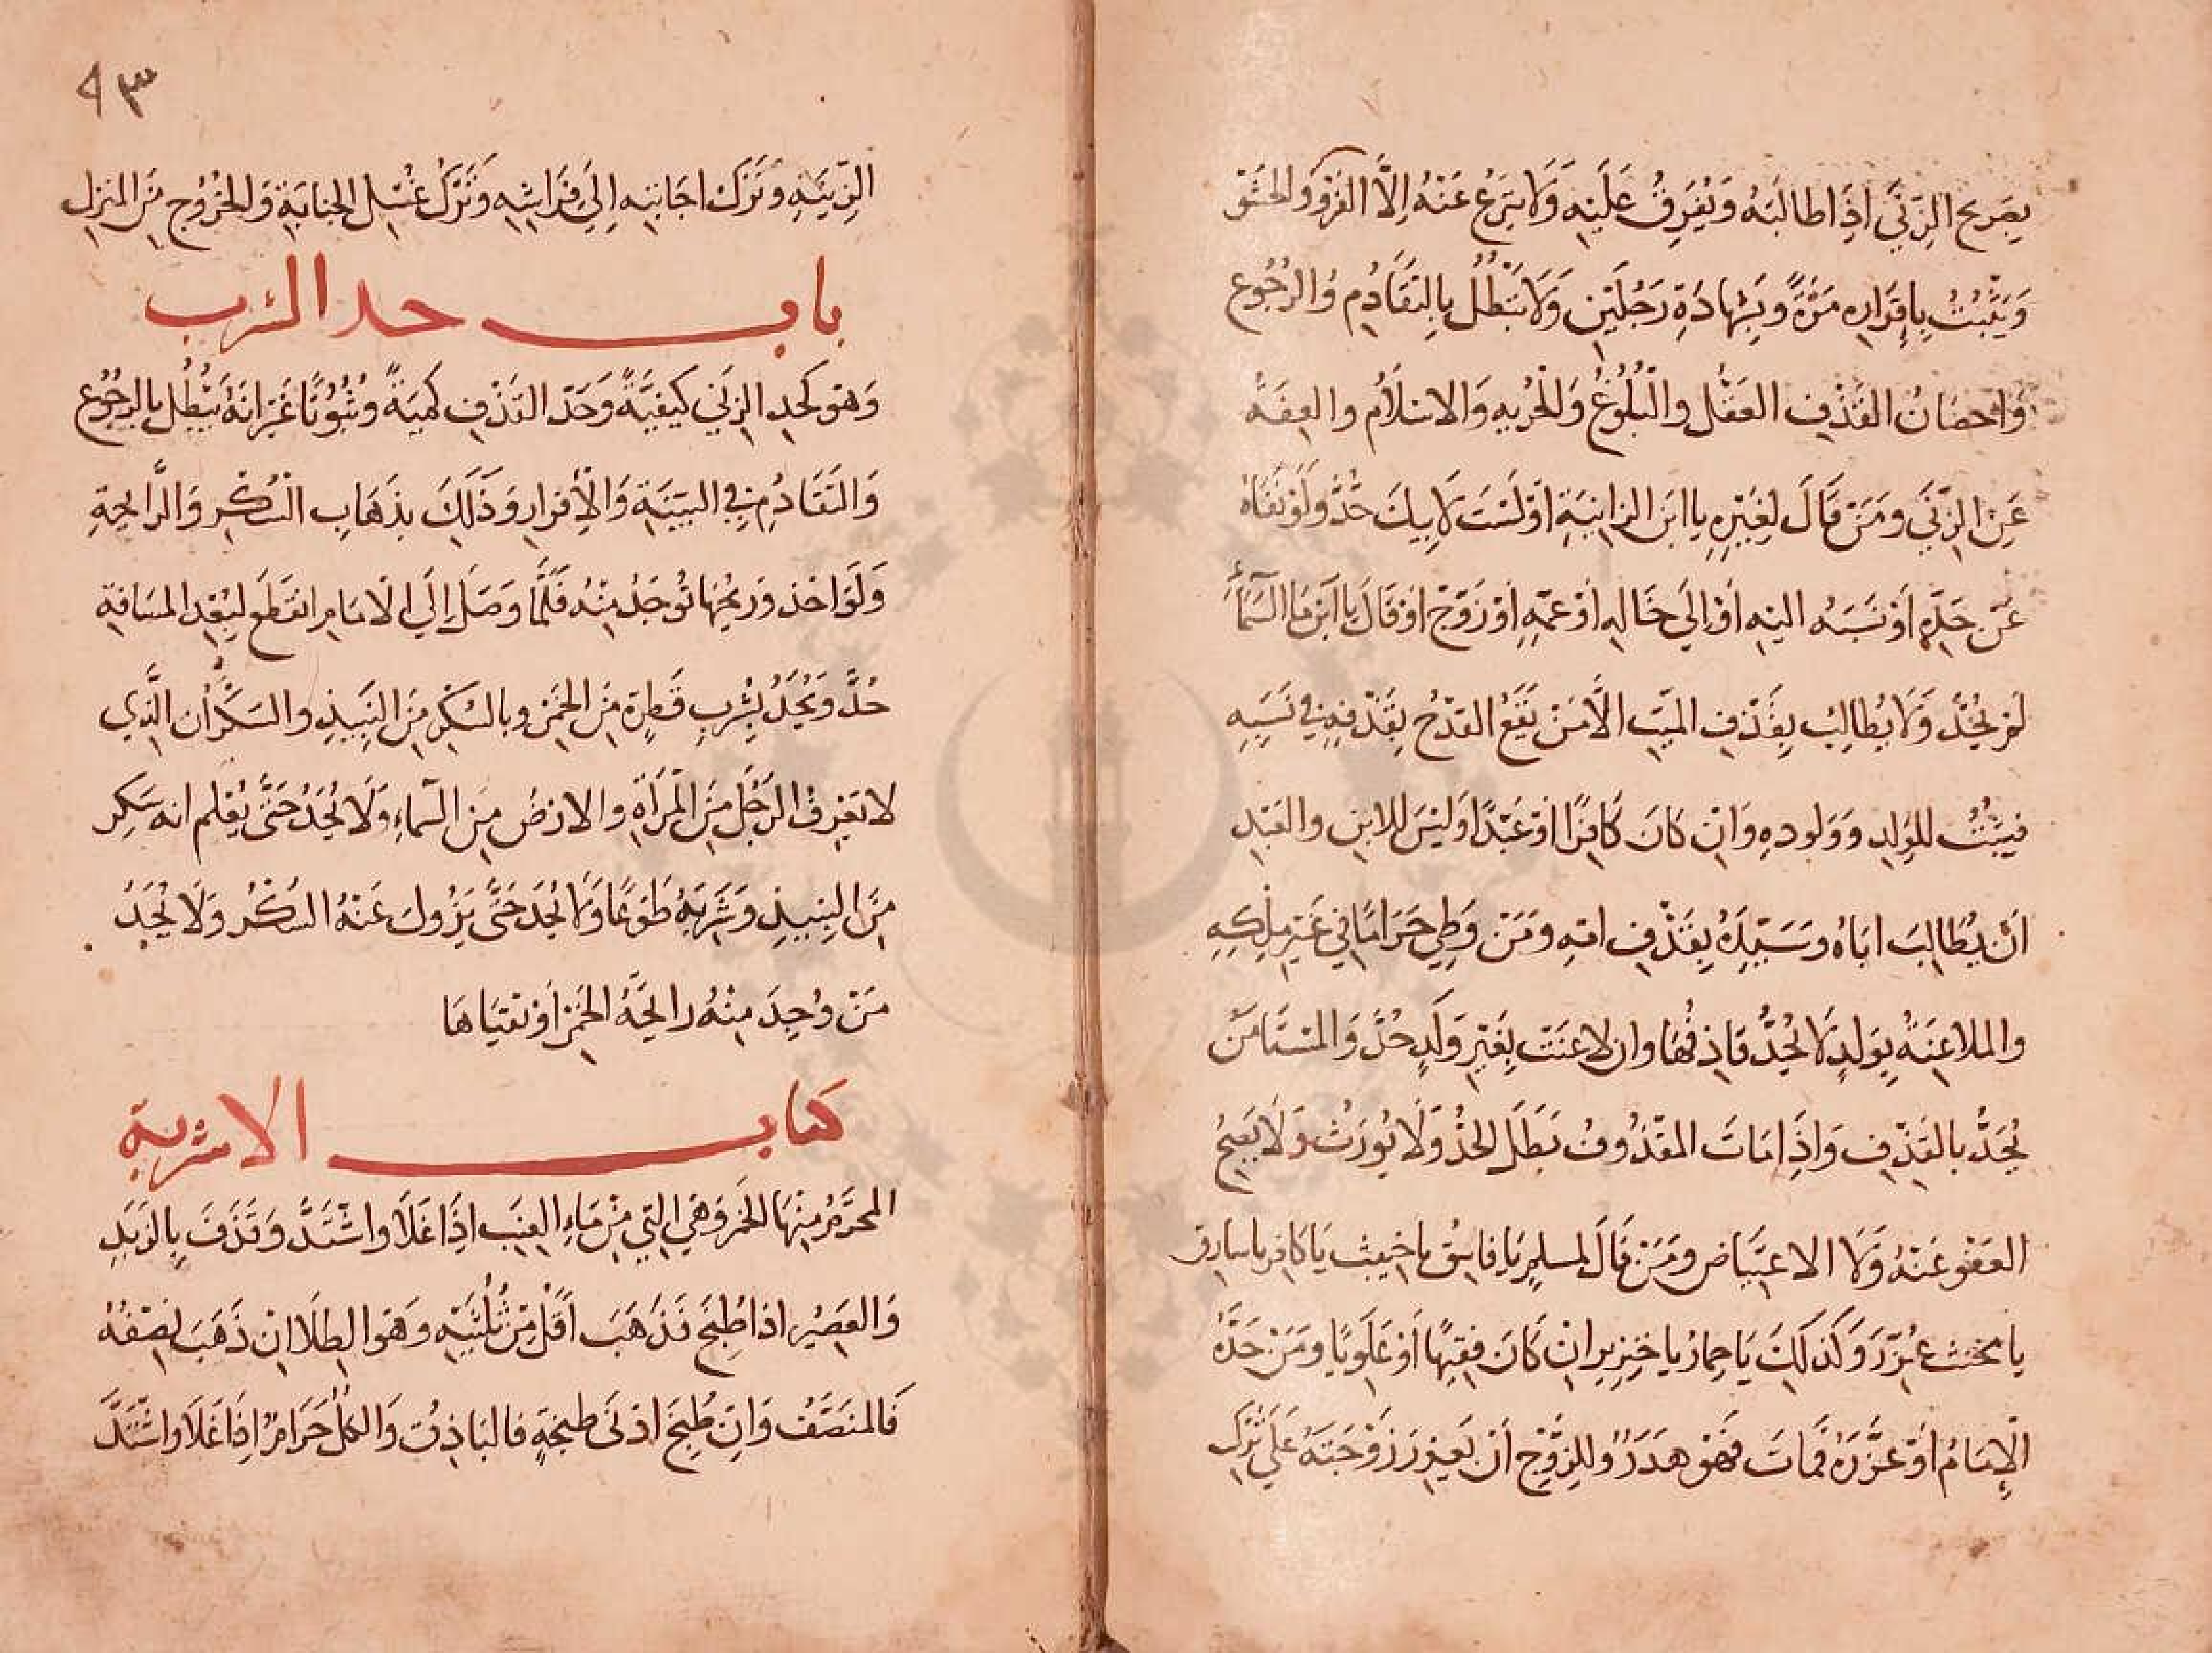 بِصَرِيح الزِنَى اذَا طالبَهُ وَيُفَرِقُ عَلَيْهِ وَلَا يَنزعُ عَنْهُ اِلَّا الفَرْوَ وَالحَشْوَ
وَيَثْبُتُ بِاِقرَارِه مَرَّةً وَبِشَهادَةِ رَجُلَيْنِ وَلَا تَبْطُلُ بِالتَقَادُمِ وُالرُجُوع
وَاِحصَانُ القَذْفِ العَقْل والْبُلُوغُ وَالْحُرِيه وَالاسْلَام والعِفَةُ
عَنِ الزِنَى وَمَنْ قَالَ لِغَيْرِهِ يا ابْنَ الزانِيَةِ اوْ لَسْتَ لَابِيكَ حُدَّ وَلَوْ نَفَاهُ
عَنْ جَدِّهِ أَوْ نَسَبَهُ اليْهِ أَوْ الَي خَالِهِ أوْ عَمِهِ اوْ زَوْج اوْ قَالَ يَا ابْنَ مَا السَمآءِ
لَمْ يُحَدَّ وَلَا يُطالِبُ بِقَذْفِ المَيِّتِ الَّا مَنْ يَقَعُ القَدْحُ بِقَذْفِهِ فِي نَسَبِهِ
فيَثْبُتُ لِلوَلدِ وَوَلوده وَانْ كَانَ كَافِرًا اوْ عَبْدًا وَلَيْسَ للابن والعَبْدِ
انْ يُطالِبَ ابَاهُ وَسَيِّدَهُ بِقَذْفِ امِهِ وَمَنْ وَطِي حَرَامًا فِي غَيْرِ مِلْكِهِ
والملاعِنَةُ بِوَلدٍ لَا يُحَدُّ قَاذِفُهَا وان لاعنَتْ بِغَيْرِ وَلَدٍ حُدَّ وَالمُسْتَامَنُ
يُحَدُّ بالقَذْفِ وَاذَا مَاتَ المقْذُوفُ بَطَلَ الحَدُّ وَلَا يُورَثُ وَلَا يَصِحُ
العَفْو عَنْهُ وَلَا الاعتِيَاض ومَنْ قَالَ لمسلِمٍ يَا فاسِقُ يا خبيث يَا كَافر يا سارق
يا مخنث عُزِّرَ وَكَذلِكَ يَا حِمارُ يا خِنزِير انْ كَانَ فقيهًا أوْ عَلَوِيًا وَمَنْ حَدَّهُ
الْاِمَامُ اوْ عَزَّرَهُ فمَاتَ فَهْوَ هَدَرٌ وللزَوْجِ انْ يُعَزِرَ زَوْجَتَهُ عَلَي تَرْكِ
٩٣
الزِينَةِ وَتَرَكَ اجَابتِهِ الَي فِرَاشِهِ وَتَرْكُ غُسْلِ الجَنَابَةِ وَالخُرُوجِ مِنَ المنزل
باب حد الشرب
وَهْوَ كَحدِ الزِنَي كَيفِيَّةً وَحَدّ القَذْفِ كَمِيَةً وَثُبُوتًا غَيْرَ انَهُ يَبْطُل بالرُجُوع
وَالتَقَادُمِ فِي البَيِنَةِ وَالْاِقرارِ وَذَلِكَ بِذَهَابِ السُكْرِ وَالرَّايحَةِ
وَلَوْ اخذ وَريحُهَا تُوجَدُ مِنْهُ فَلَمَّا وَصَلَ الَي الامَامِ انْقَطَعَ لبُعْدِ المسَافةِ
حُدَّ وَيُحَدُّ بِشُربِ قَطرَة مِنَ الخَمْرِ وبالسُكْرِ مِنَ النَبِيذِ والسَكْرَان الَّذِي
لا يَعْرِفُ الرَجُلَ مِنَ المَرْأةِ والارْضَ مِنَ السَّماءِ وَلَا يُحَدُ حَتَّى يُعْلم انه سَكِر
مِنَ النَبِيذِ وَشَرِبَهُ طَوعًا وَلَا يُحَد حَتَّى يَزُولَ عَنْهُ السُكْرُ وَلَا يُحَدُ
مَنْ وُجِدَ مِنْهُ رايحَةُ الخَمْرِ أوْ تقيَاهَا
كتاب الاشربة
المحرَّمُ مِنْهَا الخَمرُ وَهْيَ التي مِنْ مَاءِ العِنَبِ اذَا غَلَا واشْتَدَّ وَقَذَفَ بِالزَبَدِ
وَالعَصِيرُ اذا طُبِخَ فَذَهَبَ أقَلُّ مِنْ ثُلُثَيْهِ وَهْوَ الطِلَا انْ ذَهَبَ نِصْفُهُ
فَالمنَصَّفُ وَانْ طُبِخَ ادْنَى طبخَةٍ فالبَاذِقُ وَالكُلُ حَرَامٌ اِذَا غَلَا وَاشْتَدَّ